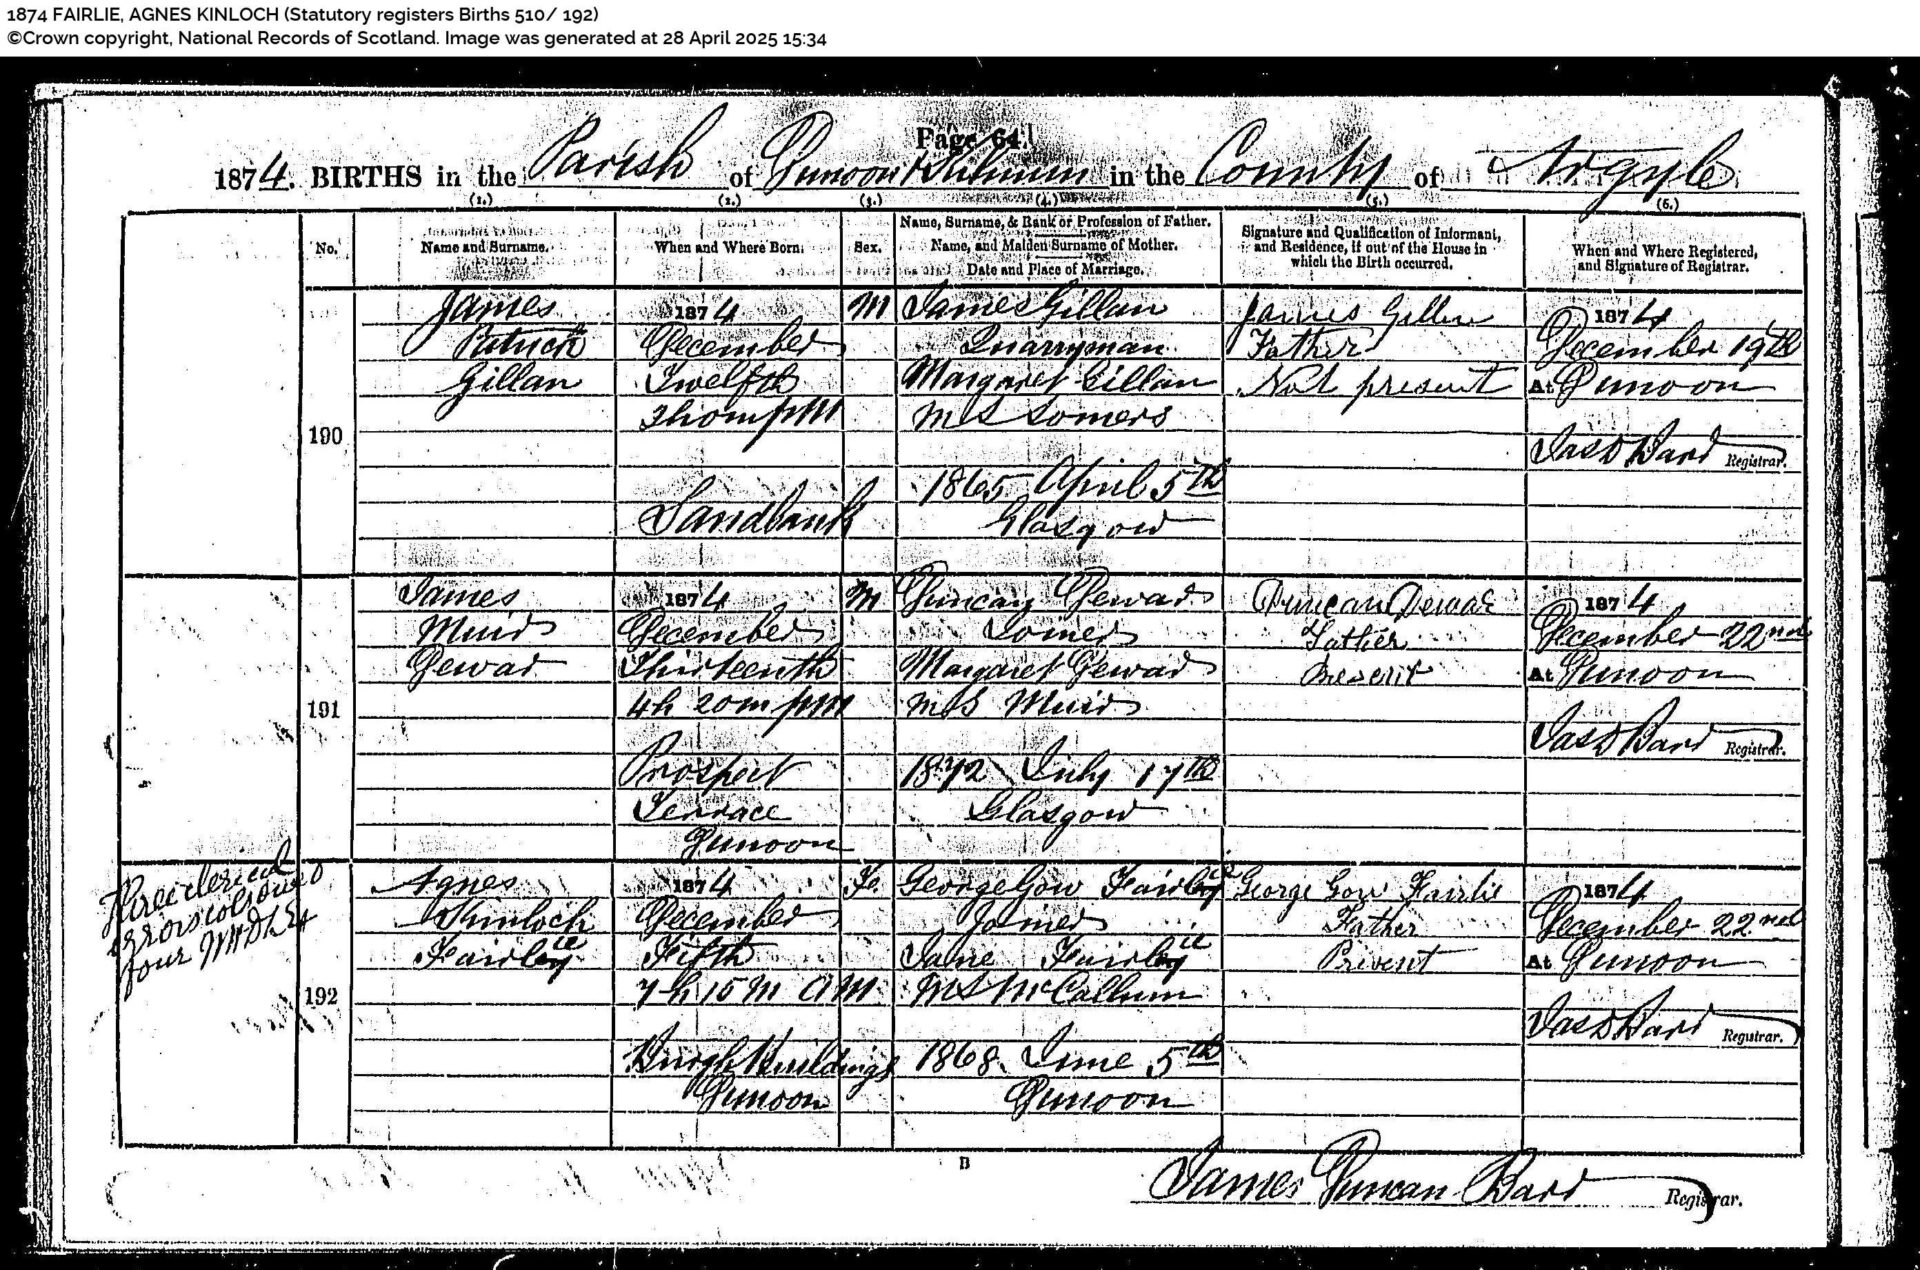 1874 FAIRLIE, AGNES KINLOCH (Statutory registers Births 510/ 192)
©Crown copyright, National Records of Scotland. Image was generated at 28 April 2025 15:34
Page 64.
1874. BIRTHS in the Parish of Dunoon & Kilmun in the County of Argyle
(1.) (2.) (3.) (4.) (5.) (6.)
No. Name and Surname. When and Where Born. Sex. Name, Surname, & Rank or Profession of Father. Name, and Maiden Surname of Mother. Date and Place of Marriage. Signature and Qualification of Informant, and Residence, if out of the House in which the Birth occurred. When and Where Registered, and Signature of Registrar.
190
James
Patrick
Gillan
1874
December
Twelfth
7 h 0 m PM
Sandbank
M
James Gillan
Quarryman
Margaret Gillan
MS Somers
1865 April 5th
Glasgow
James Gillen
Father
Not present
1874
December 19th
At Dunoon
Jas D Bard Registrar.
191
James
Muir
Dewar
1874
December
Thirteenth
4h 20m PM
Prospect
Terrace
Dunoon
M
Duncan Dewar
Joiner
Margaret Dewar
MS Muir
1872 July 17th
Glasgow
Duncan Dewar
Father
Present
1874
December 22nd
At Dunoon
Jas D Bard Registrar.
Three clerical
errors
four
192
Agnes
Kinloch
Fairley ie
1874
December
Fifth
7 h 15 M AM
Burgh Buildings
Dunoon
Fe.
George Gow Fairley ie
Joiner
Jane Fairley ie
MS McCallum
1868 June 5th
Dunoon
George Gow Fairlie
Father
Present
1874
December 22nd
At Dunoon
Jas D Bard Registrar.
B
James Duncan Bard Registrar.